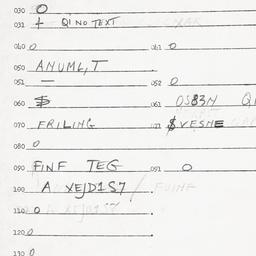 030 O
031 + QI NO TEXT
040 O 041 O
050 ANUML,T
051 — 052 O
060 $ 061 OS83N
070 FRILING $VESNE
080 O
090 FINF TEG 091 O
100 A XEJD1S7
110 O
120 O
130 O